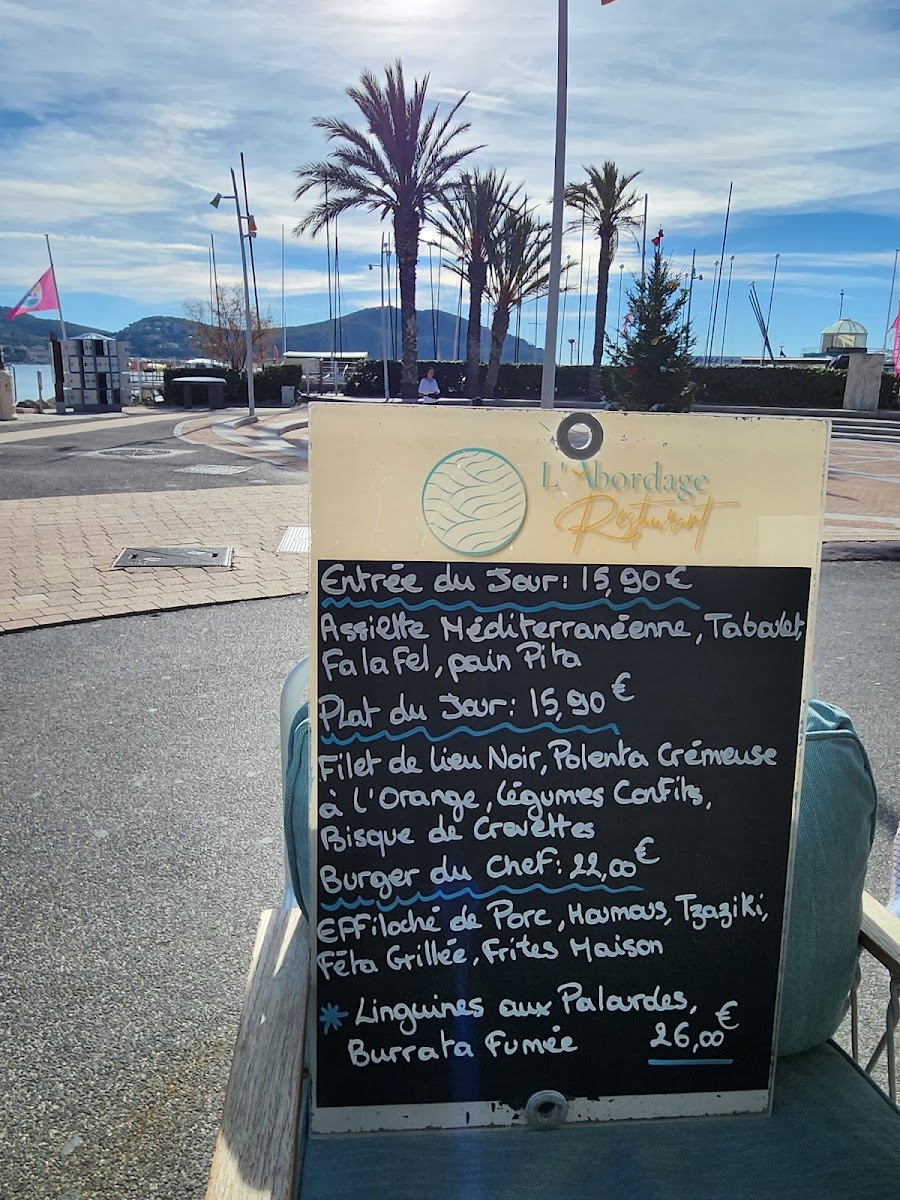 L'Abordage
Restaurant
Entrée du Jour: 15,90€
Assiette Méditerranéenne, Taboulet,
Falafel, pain Pita
Plat du Jour: 15,90€
Filet de Lieu Noir, Polenta Crémeuse
à l'Orange, Légumes Confits,
Bisque de Crevettes
Burger du Chef: 22,00€
Effiloché de Porc, Houmous, Tzaziki,
Féta Grillée, Frites Maison
* Linguines aux Palourdes,
Burrata Fumée 26,00€